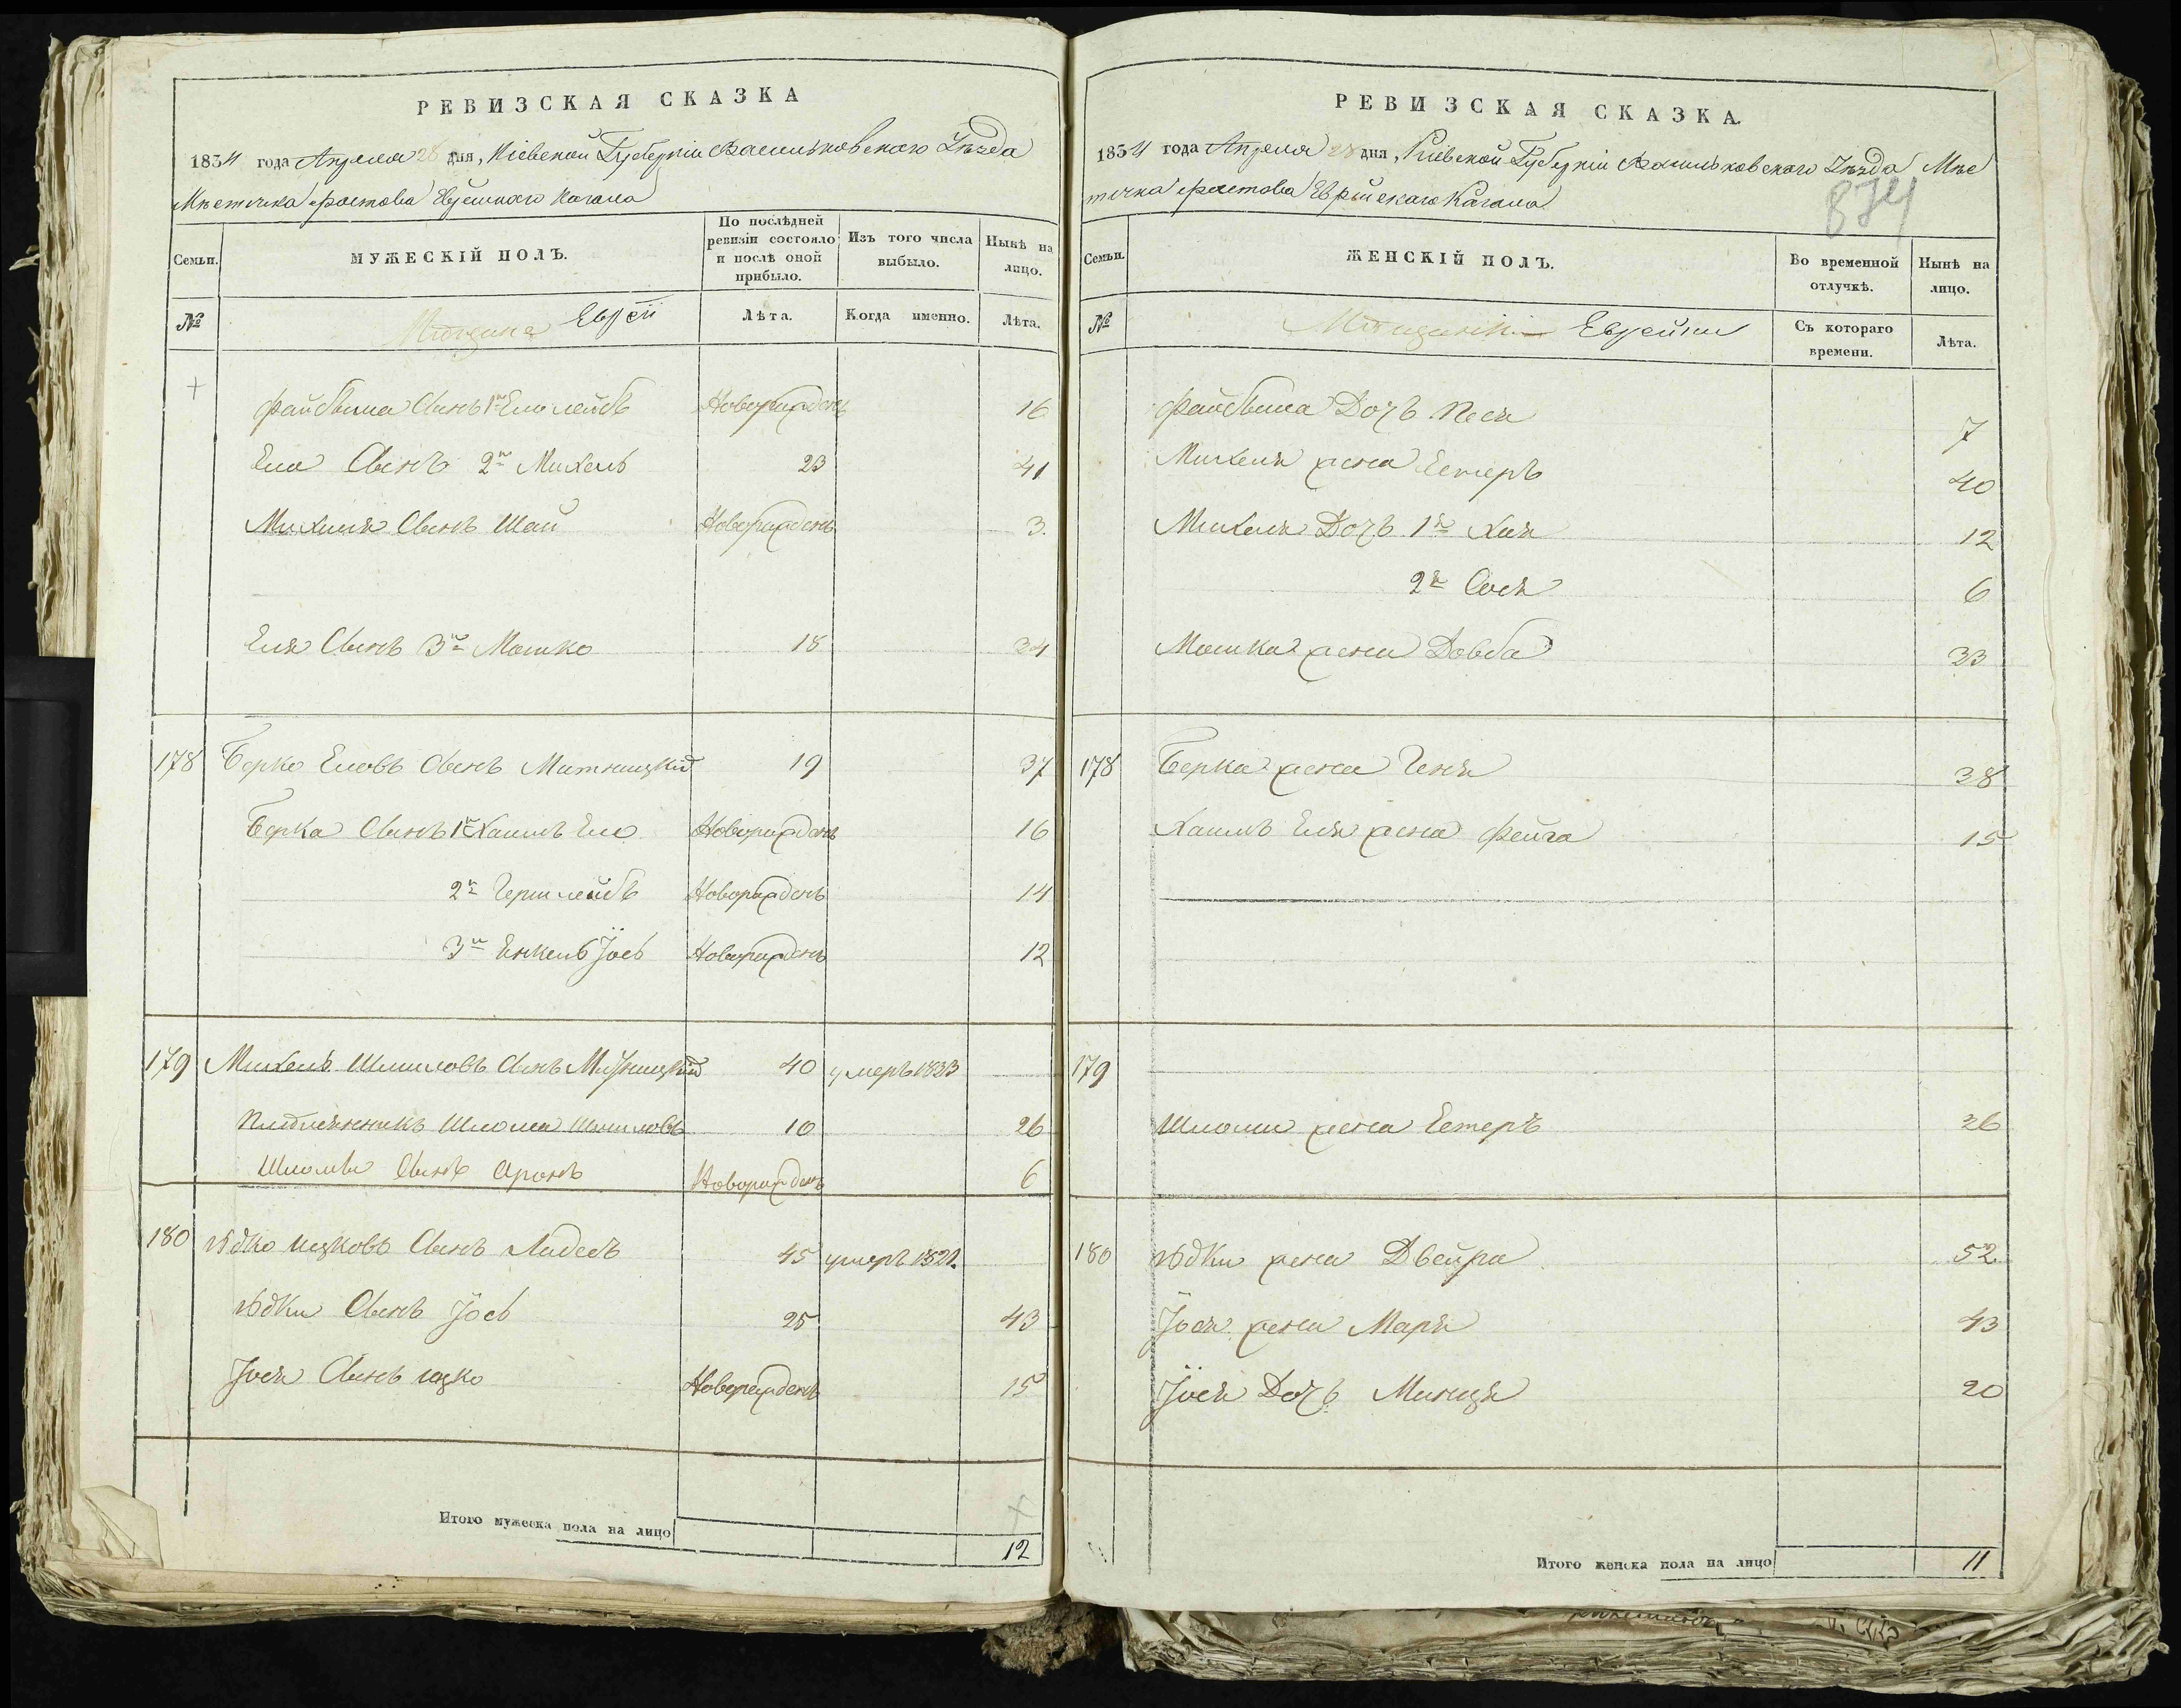 РЕВИЗСКАЯ СКАЗКА
1834 года Апреля 28 дня, Кіевской Губерніи Васильковскаго Уѣзда
Мѣстечка Фастова Еврейскаго Кагала
Семьи.
МУЖЕСКІЙ ПОЛЪ.
По послѣдней ревизіи состояло и послѣ оной прибыло.
Изъ того числа выбыло.
Нынѣ на лицо.
№
Мещане Евреи
Лѣта.
Когда именно.
Лѣта.
Файвиша Сынъ 1й Ельлейбъ Новорожденъ 16
Еля Сынъ 2й Михель 23 41
Михеля Сынъ Шая Новорожденъ 3.
Еля Сынъ 3й Мошко 18 34
178 Берко Еловъ Сынъ Митницкій 19 37
Берка Сынъ 1й Хаимъ Ель Новорожденъ 16
2й Гершлейбъ Новорожденъ 14
3й Янкель Іось Новорожденъ 12
179 Михель Шмиловъ Сынъ Митницкій 40 умеръ 1833
Племянникъ Шлома Шмиловъ 10 26
Шломы Сынъ Аронъ Новорожденъ 6
180 Юдко Ицковъ Сынъ 45 умеръ 1821.
Юдки Сынъ Іось 25 43
Іося Сынъ Ицко Новорожденъ 15
Итого мужеска пола на лицо 12
РЕВИЗСКАЯ СКАЗКА.
1834 года Апреля 28 дня, Кіевской Губерніи Васильковскаго Уѣзда Мѣс
течка Фастова Еврейскаго Кагала
874
Семьи.
ЖЕНСКІЙ ПОЛЪ.
Во временной отлучкѣ.
Нынѣ на лицо.
№
Мещанки Еврейки
Съ котораго времени.
Лѣта.
Файвиша Дочь Песя 7
Михеля жена Естеръ 40
Михеля Дочь 1я Хая 12
2я Сося 6
Мошка жена Довба 33
178 Берка жена Геня 38
Хаимъ Еля жена Фейга 15
179
Шломы жена Естеръ 26
180 Юдки жена Двейра 52
Іося жена Маря 43
Іося Дочь Минця 20
Итого женска пола на лицо 11